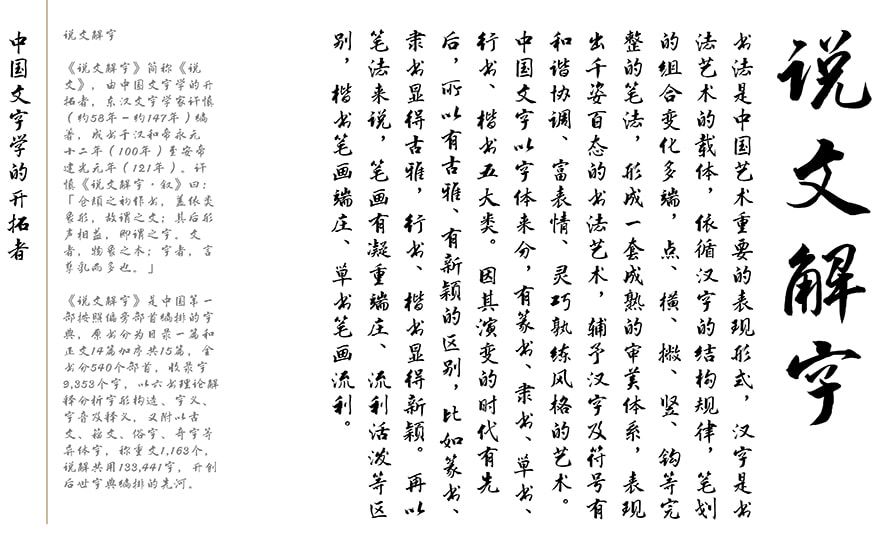 说文解字
书法是中国艺术重要的表现形式，汉字是书
法艺术的载体，依循汉字的结构规律，笔划
的组合变化多端，点、横、撇、竖、钩等完
整的笔法，形成一套成熟的审美体系，表现
出千姿百态的书法艺术，辅予汉字及符号有
和谐协调、富表情、灵巧熟练风格的艺术。
中国文字以字体来分，有篆书、隶书、草书、
行书、楷书五大类。因其演变的时代有先
后，所以有古雅、有新颖的区别，比如篆书、
隶书显得古雅，行书、楷书显得新颖。再以
笔法来说，笔画有凝重端庄、流利活泼等区
别，楷书笔画端庄、草书笔画流利。
说文解字
《说文解字》简称《说
文》，由中国文字学的开
拓者，东汉文字学家许慎
（约58年－约147年）编
著，成书于汉和帝永元
十二年（100年）至安帝
建光元年（121年）。许
慎《说文解字·叙》曰：
「仓颉之初作书，盖依类
象形，故谓之文；其后形
声相益，即谓之字。文
者，物象之本；字者，言
孳乳而多也。」
《说文解字》是中国第一
部按照偏旁部首编排的字
典，原书分为目录一篇和
正文14篇加序共15篇，全
书分540个部首，收录字
9,353个字，以六书理论解
释分析字形构造、字义、
字音及释义，又附以古
文、籀文、俗字、奇字等
异体字，称重文1,163个，
说解共用133,441字，开创
后世字典编排的先河。
中国文字学的开拓者